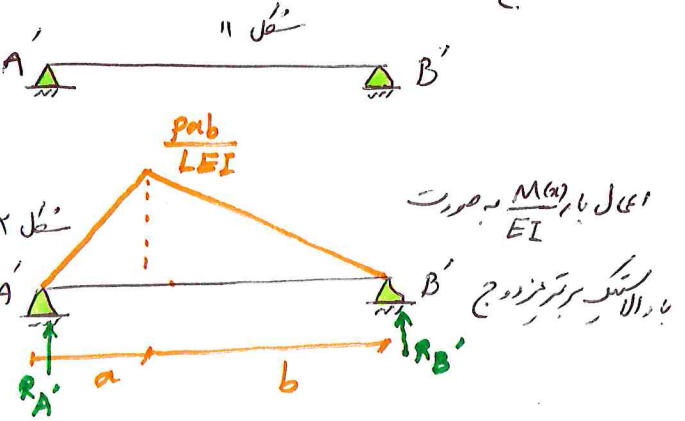 شکل ۱۱
A' B'
Pab
LEI
اعمال بار M(x)/EI به صورت
شکل ۲
بار الاستیک بر تیر مزدوج
A' B'
R_A' a b R_B'